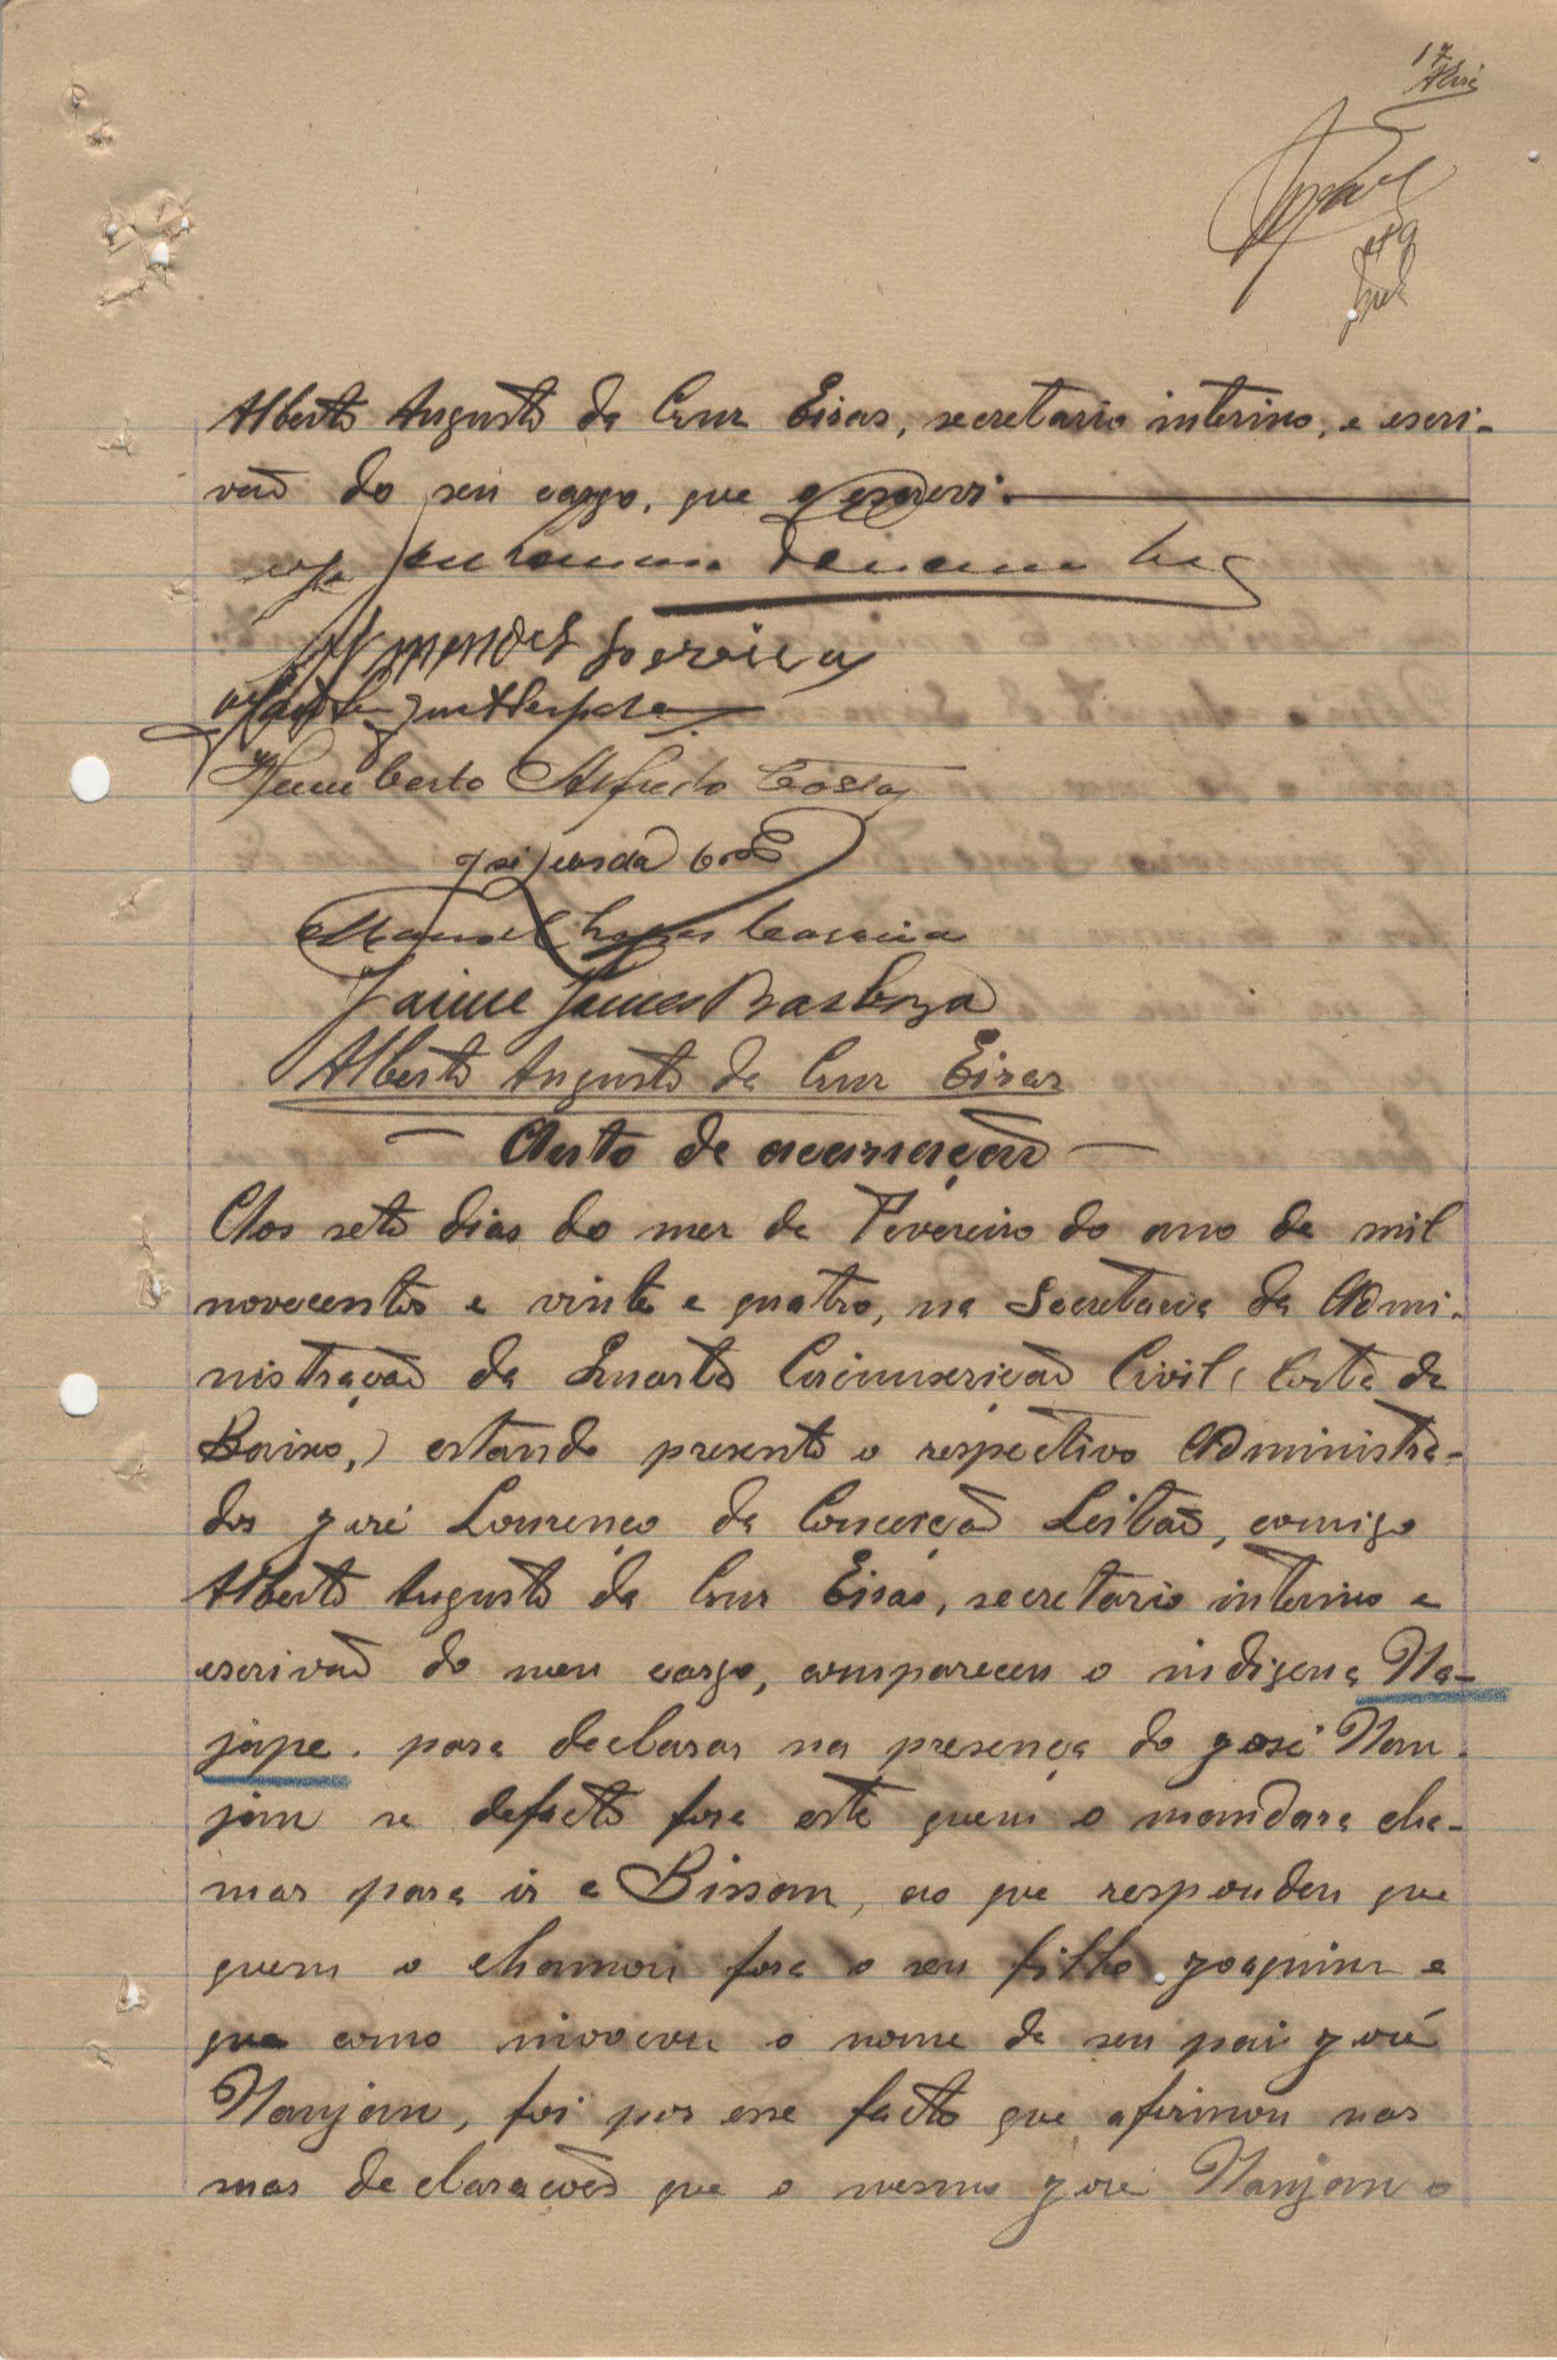 17
Alberto Augusto da Cruz Eiras, secretario interino, e escri-
vaõ do seu cargo, que o escrevi.
Mendes
Humberto Alfredo Costa
Manoel Lopes
Jaime Gomes Barboza
Alberto Augusto da Cruz Eiras
— Auto de acariação —
Aos sete dias do mez de Fevereiro do ano de mil
novecentos e vinte e quatro, na Secretaria da Admi-
nistração da Quarta Circunscrição Civil (Costa de
Baixo,) estando presente o respectivo Administra-
dor José Lourenço da Conceição Leitaõ, comigo
Alberto Augusto da Cruz Eiras, secretario interino e
escrivaõ do meu cargo, compareceu o indigena Na-
jape. para declarar na presença do José Nan-
jam se defacto fora este quem o mandara cha-
mar para ir a Bissau, ao que respondeu que
quem o chamou fora o seu filho Joaquim e
que como invocou o nome de seu pai José
Nanjam, foi por esse facto que afirmou nas
suas declaraçoẽs que o mesmo José Nanjam o